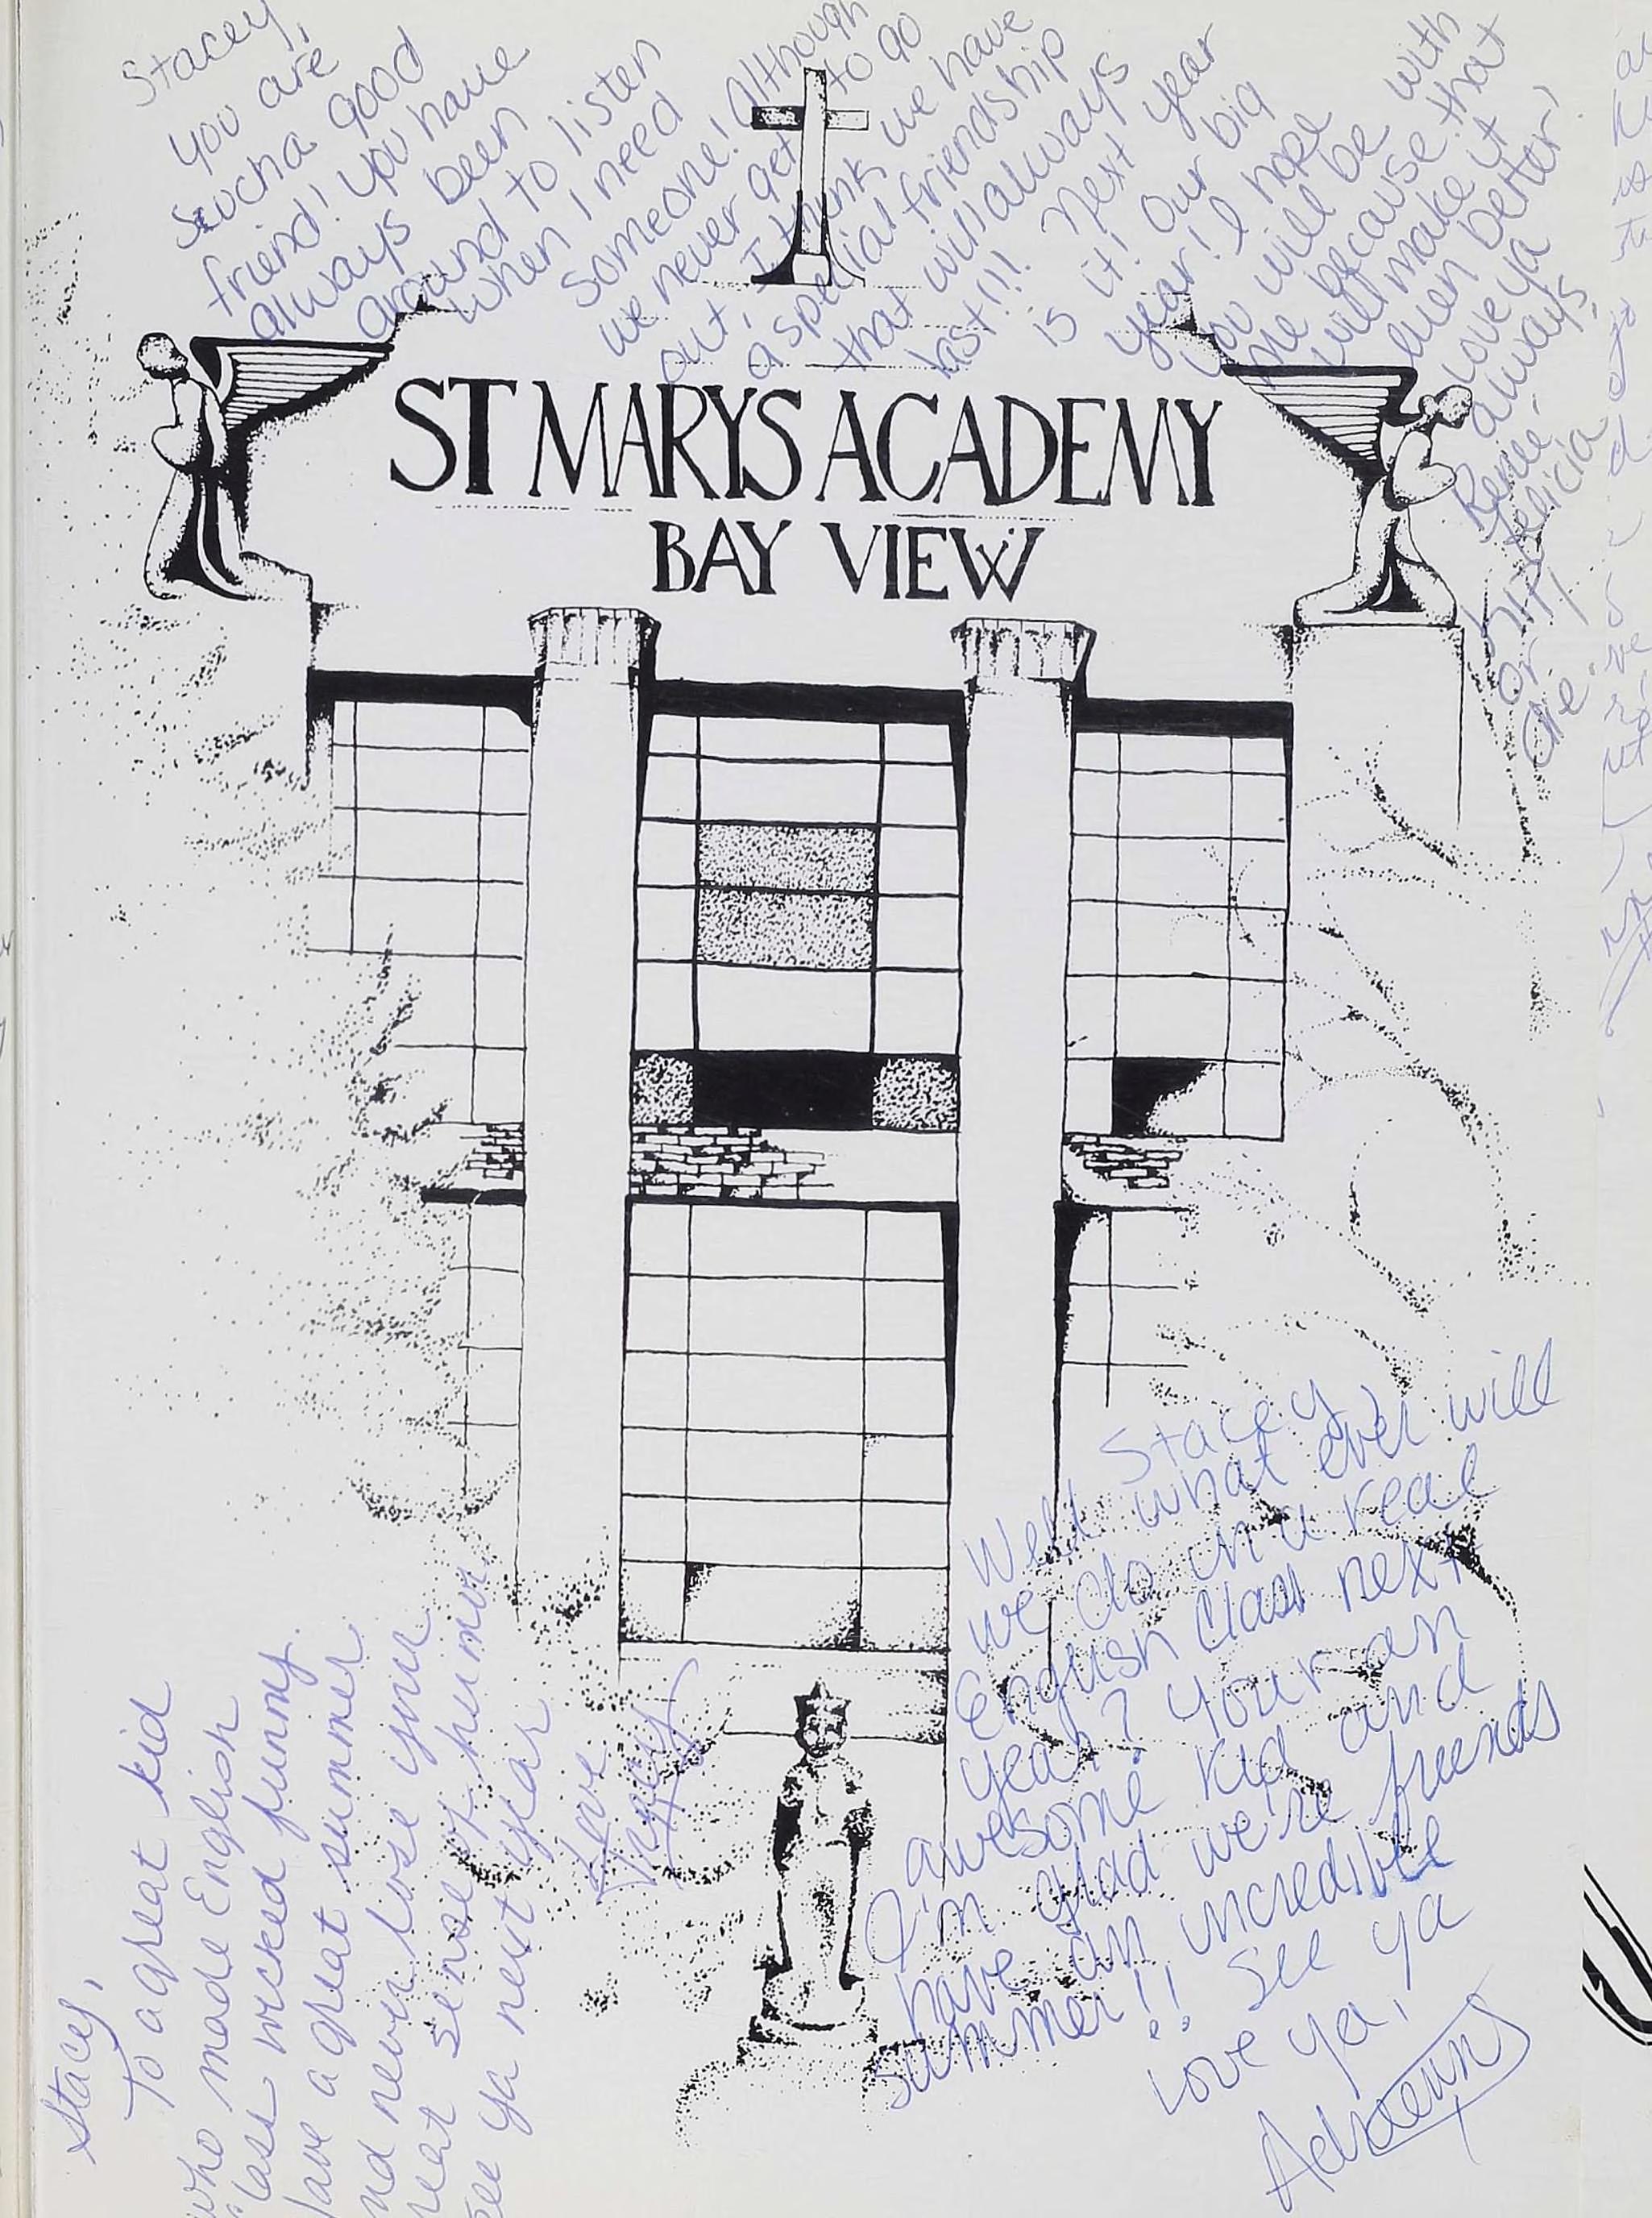 Stacey,
you are
sucha good
friend! You have
always been
around to listen
when I need
someone! Although
we never get to go
out, I think we have
a special friendship
that will always
last!!! Next year
is it! Our big
year! I hope
you will be with
me because that
will make it
even better!
Love ya
always,
Renee-
Felicia
ST MARYS ACADEMY
BAY VIEW
Stacey,
Well what ever will
we do in a real
English class next
year? Your an
awesome kid and
I'm glad we're friends
have an incredible
summer!! See ya
Love ya,
Stacy,
To a great kid
who made English
class wicked funny.
Have a great summer
and never lose your
great sense of humor
See ya next year
Love